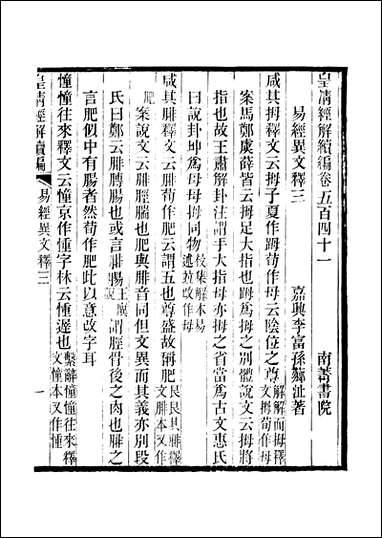 皇清經解續編卷五百四十一 南菁書院
易經異文釋三 嘉興李富孫薌沚著
咸其拇釋文云拇子夏作𨂂荀作母云陰位之尊解解而拇釋文拇荀作母
案馬鄭虞薛皆云拇足大指也𨂂爲拇之別體說文云拇將
指也故王肅解卦注謂手大指母亦拇之省當爲古文惠氏
曰說卦坤爲母母拇同物校集解本易述竝改作母
咸其腓釋文云荀作肥云謂五也尊盛故稱肥艮艮其腓釋文腓本又作肥
案說文云腓脛腨也肥與腓音同但文異而其義亦別段
氏曰鄭云腓膊腸也或言腓腸王廙說謂脛骨後之肉也腓之
言肥似中有腸者然荀作肥此以意改字耳
憧憧往來釋文云憧京作㣫字林云㣫遲也繫辭憧憧往來釋文憧本又作㣫
皇清經解續編
易經異文釋三
一